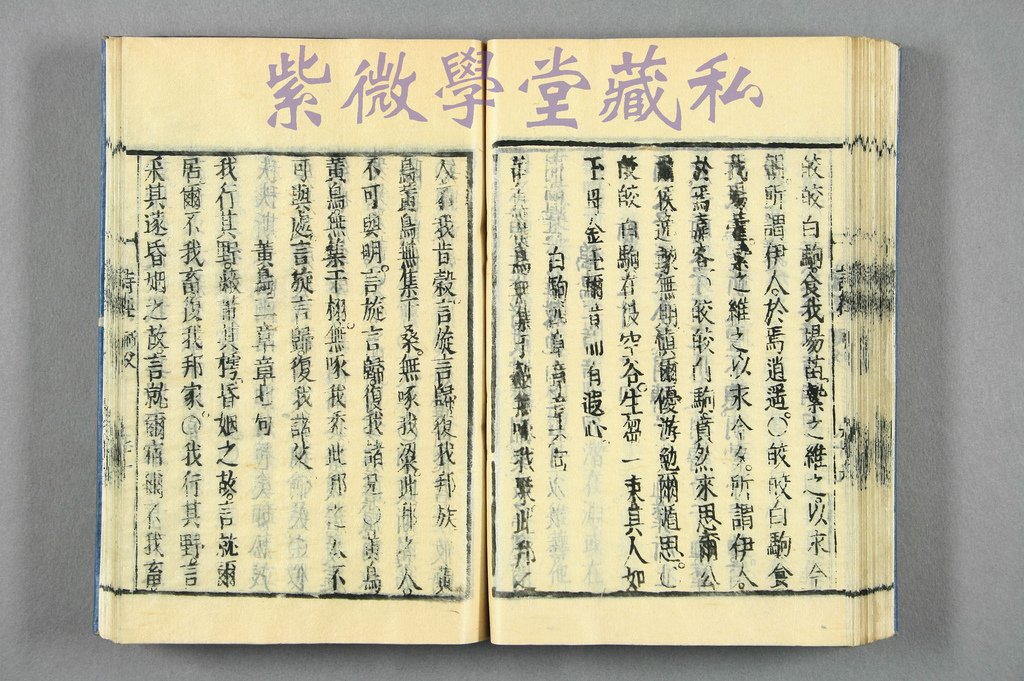 紫微學堂藏私
皎皎白駒。食我場苗。縶之維之以永今
朝所謂伊人。於焉逍遥。〇皎皎白駒食
我場藿。縶之維之以永今夕。所謂伊人。
於焉嘉客〇皎皎白駒賁然來思爾公
爾侯逸豫無期慎爾優游勉爾遁思。〇
皎皎白駒在彼空谷。生芻一束其人如
玉毋金玉爾音而有遐心
白駒四章章六句
黃鳥黃鳥無集于穀無啄我粟此邦之
人不我肯穀言旋言歸復我邦族 黃
鳥黃鳥無集于桑。無啄我粱。此邦之人。
不可與明。言旋言歸復我諸兄〇黃鳥
黃鳥無集于栩。無啄我黍此邦之人不
可與處言旋言歸復我諸父
黃鳥三章章七句
我行其野。蔽芾其樗。昏姻之故。言就爾
居爾不我畜復我邦家。〇我行其野言
采其蓫昏姻之故言就爾宿爾不我畜
詩經